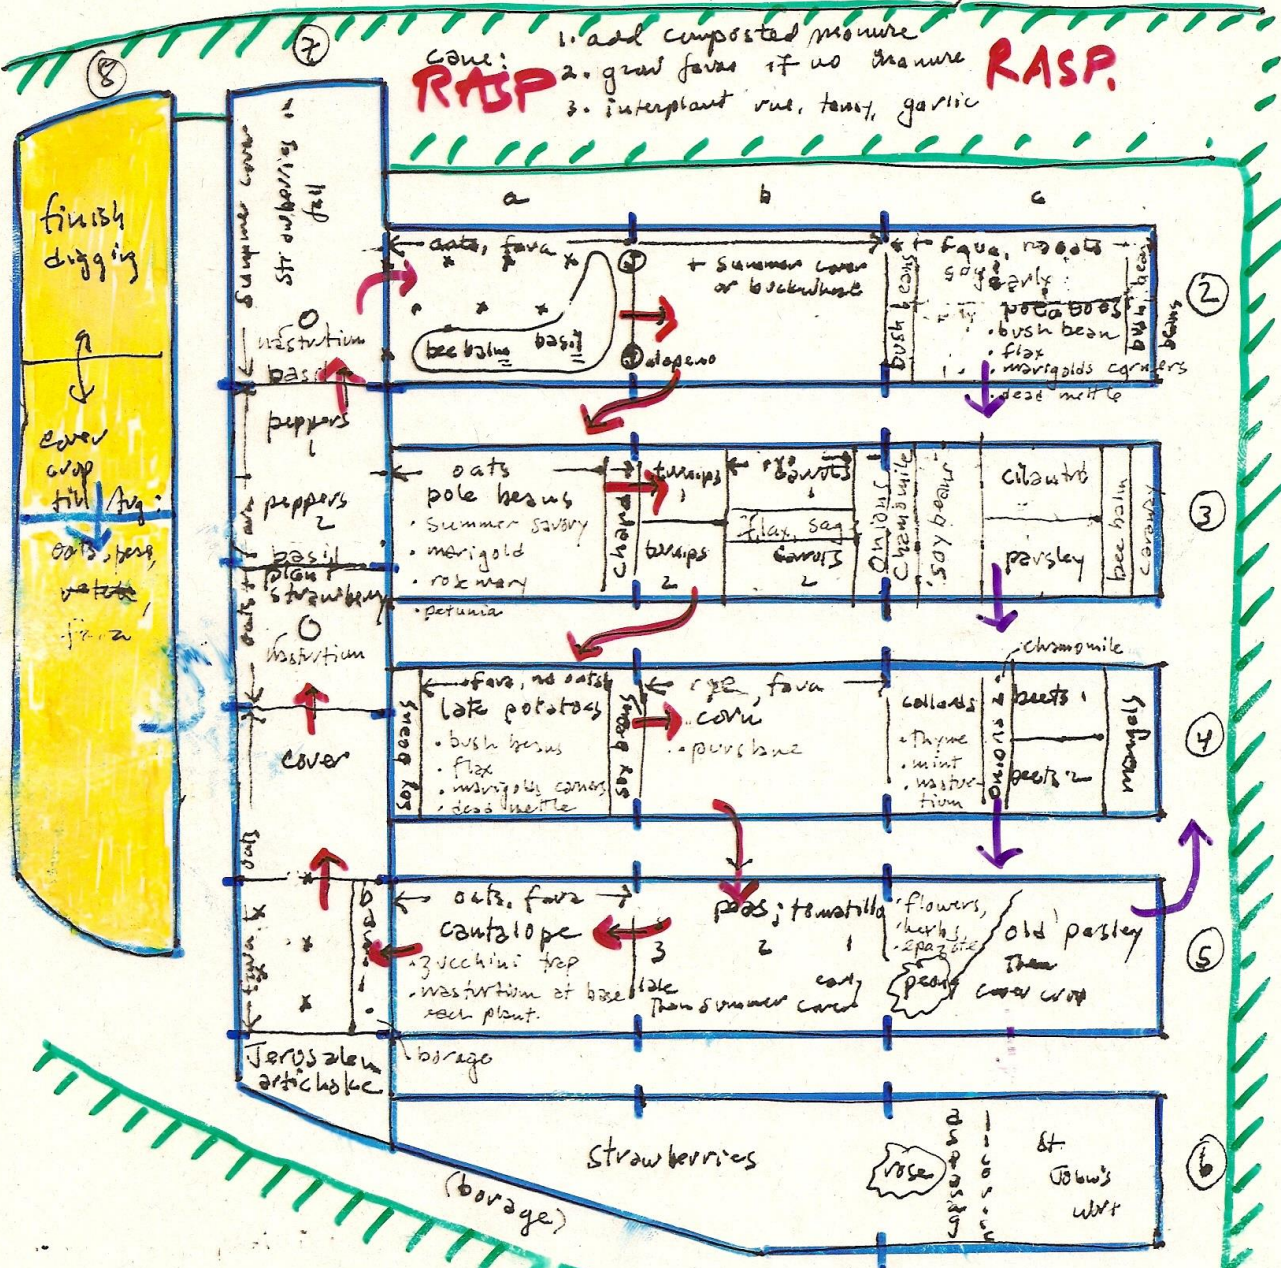 8
7
cane:
1. add composted manure
RASP
2. grow favas if no manure
RASP.
3. interplant rue, tansy, garlic
finish
digging
cover
crop
till Aug.
oats,
summer cover
strawberries
fall
nasturtium
basil
peppers
1
peppers
2
basil
plant
strawberry
nasturtium
cover
oats
fava
Jerusalem
artichoke
a
b
c
2
oats, fava
bee balm
basil
jalapeno
+ summer cover
or buckwheat
bush beans
fava, no oats
early
potatoes
• bush bean
• flax
• marigolds corners
• dead nettle
bush beans
3
oats
pole beans
• summer savory
• marigold
• rosemary
• petunia
turnips
1
turnips
2
carrots
1
flax, sag
carrots
2
onions
chamomile
soy beans
cilantro
parsley
bee balm
caraway
4
fava, no oats
late potatoes
• bush beans
• flax
• marigolds corners
• dead nettle
rye, fava
corn
• purslane
collards
• thyme
• mint
• nastur-
tium
onions
chamomile
beets 1
beets 2
5
oats, fava
cantalope
• zucchini trap
• nasturtium at base
each plant.
borage
peas; tomatillo
3
2
1
late
early
Then summer cover
flowers,
herbs,
epazote
peony
old parsley
Then
cover crop
6
strawberries
(borage)
rose
asparag
licorice
St.
John's
wort